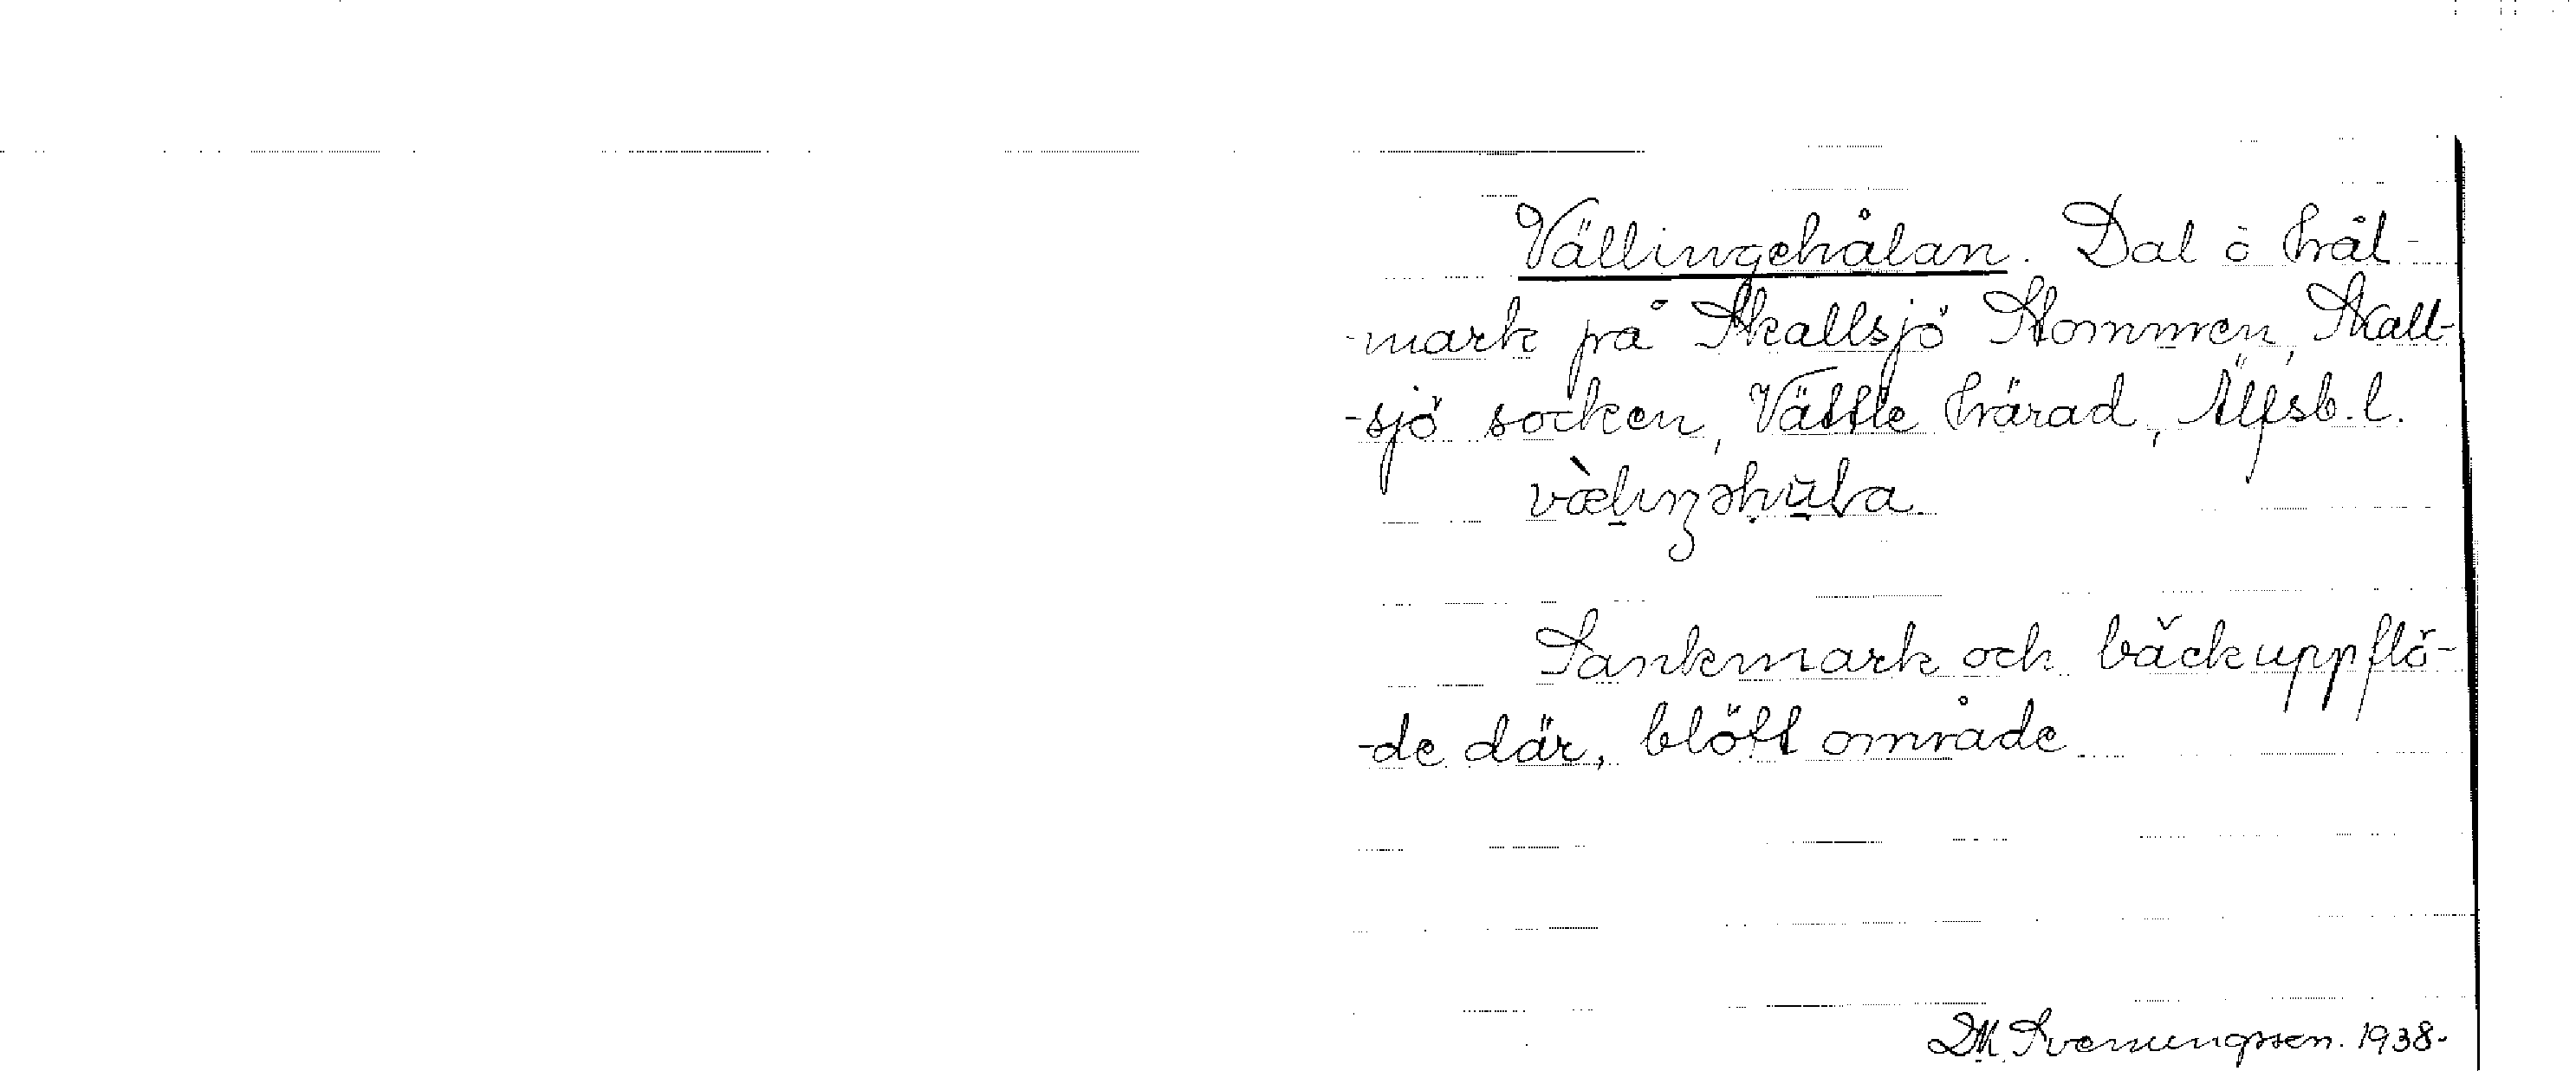 Vällingehålan. Dal o hål-
-mark på Skallsjö Stommen, Skall-
-sjö socken, Vättle härad, Älfsb. l.
Sankmark och bäckuppflö-
-de där, blött område
Svenungsson. 1938.